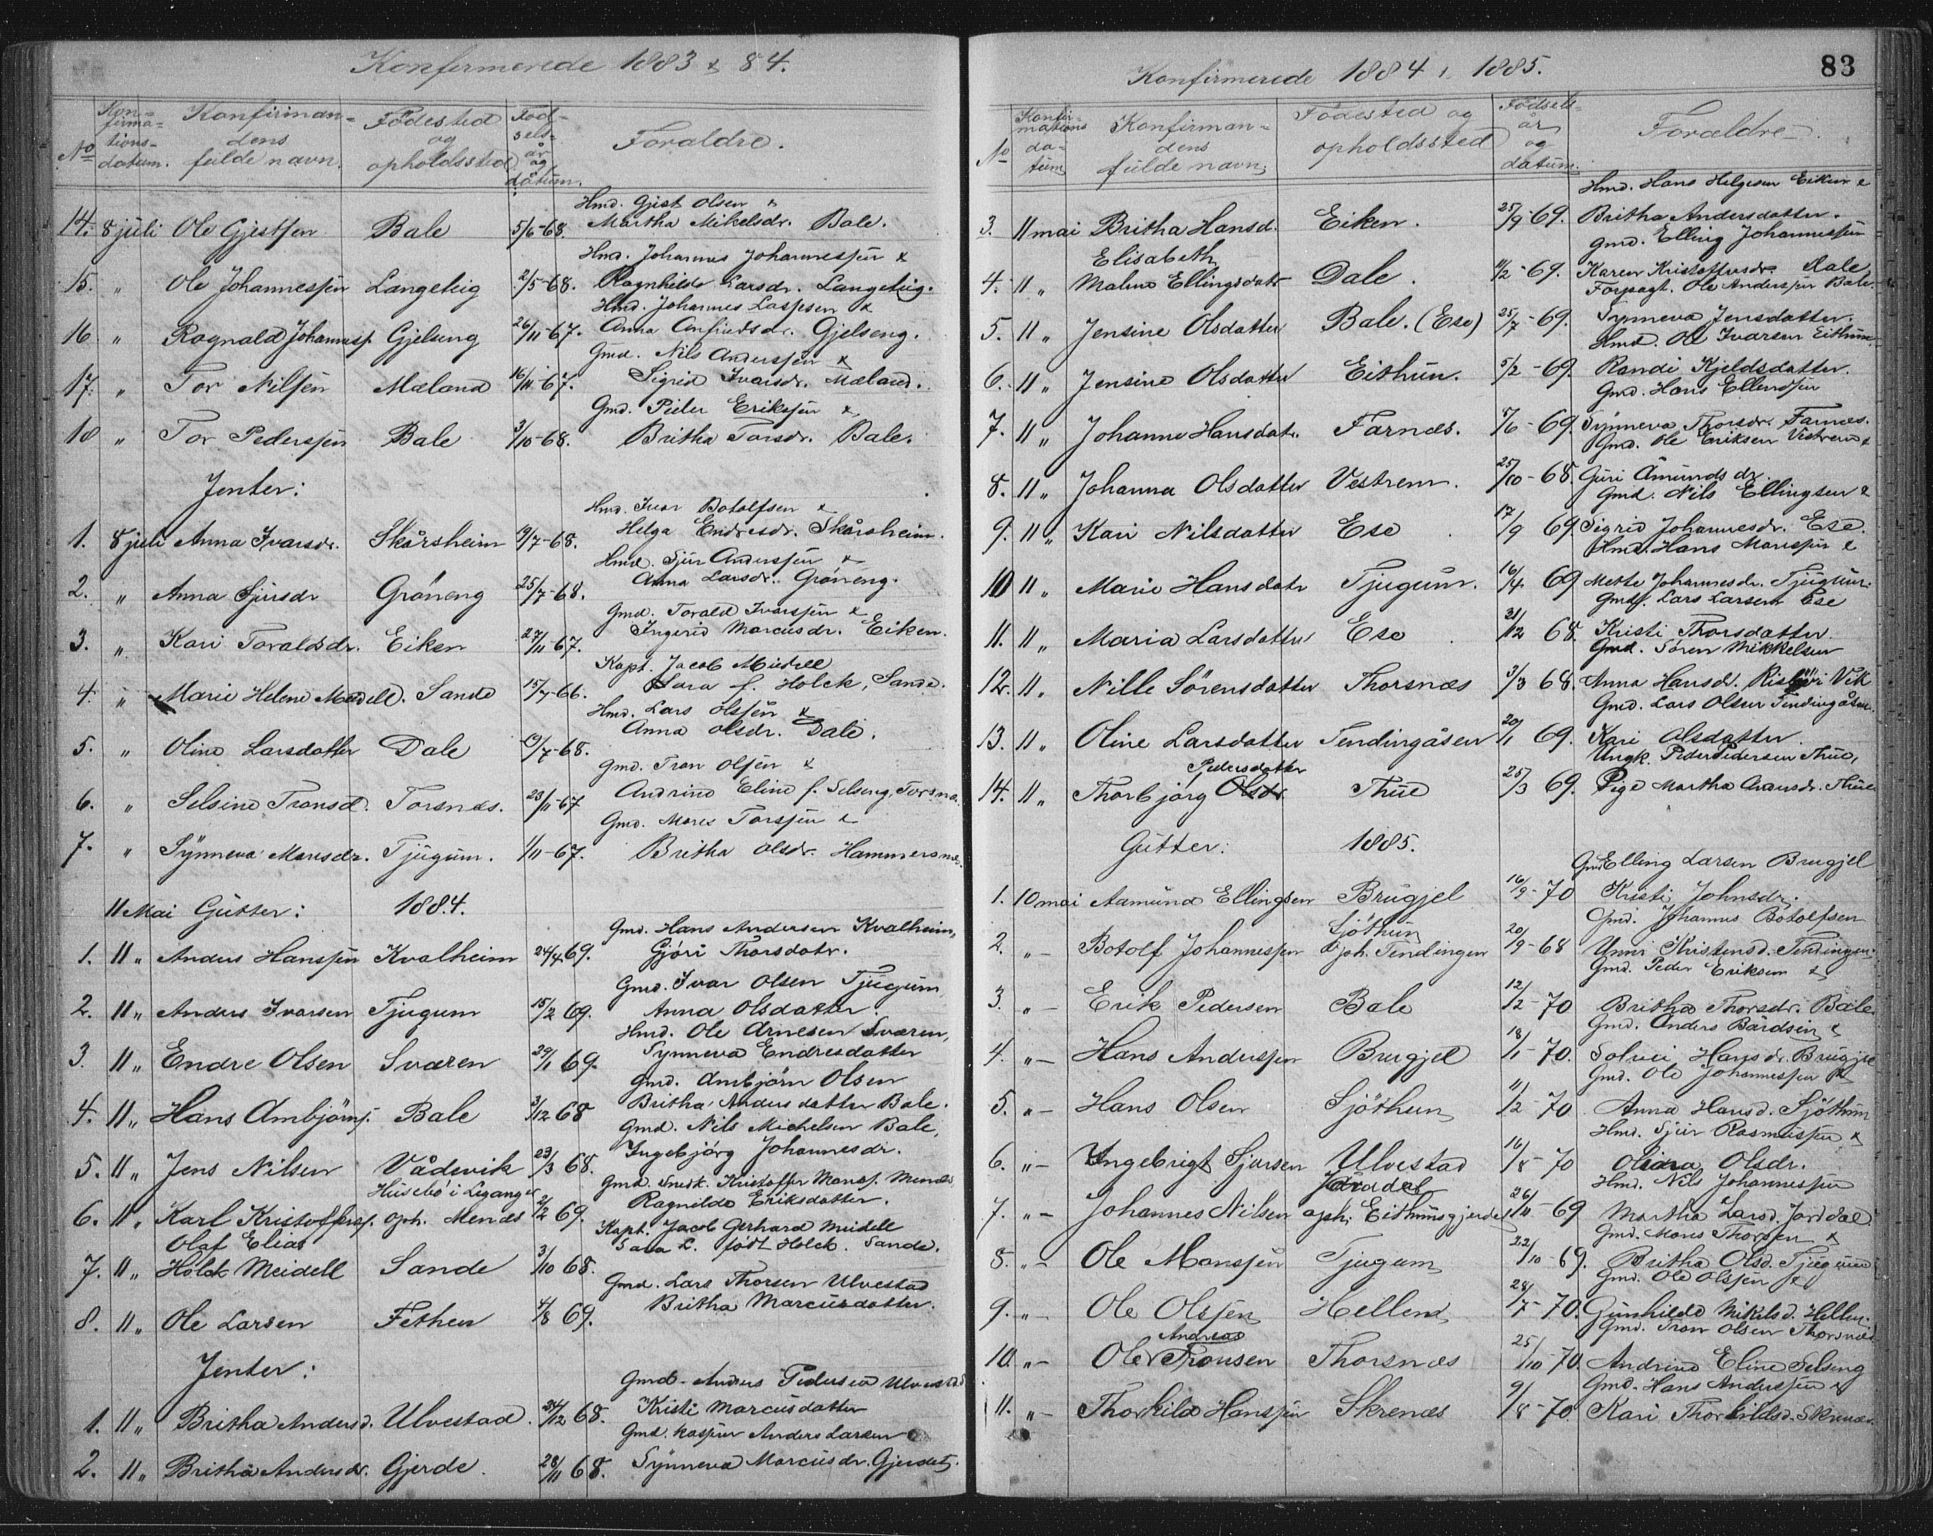 Konfirmerede 1883 & 84.
No Konfirmationsdatum. Konfirmandens fulde navn. Födested og opholdssted Födselsår og datum. Foraldre.
Hmd. Gjest Olsen &
14. 8 juli Ole Gjestsen Bale 5/6-68. Martha Mikelsdr. Bale.
Hmd. Johannes Johannessen &
15. " Ole Johannessen Langeteig 2/5-68. Ragnhilde Larsdr. Langeteig.
Hmd. Johannes Lassesen &
16 " Ragnald Johanness. Gjelseng 26/11-67. Anna Anfindsdr. Gjelseng.
Gmd. Nils Anderssen &
17. " Tor Nilsen Mæland 16/11-67. Sigrid Ivarsdr. Mæland.
Gmd. Peder Erikssen &
18 " Tor Pederssen Bale 3/10-68. Britha Torsdr. Bale.
Jenter:
Hmd. Ivar Botolfsen &
1. 8 juli Anna Ivarsdr. Skårsheim 9/7-68. Helga Endresdr. Skårsheim.
Hmd. Sjur Anderssen &
2. " Anna Sjursdr Gröneng 25/7-68. Anna Larsdr. Gröneng.
Gmd. Torald Ivarssen &
3. " Kari Toraldsdr. Eiken 27/11-67. Ingerid Marcusdr. Eiken.
Kapt. Jacob Meidell
4. " Marie Helene Meidell. Sande 15/7-66. Sara f. Holck, Sande.
Hmd. Lars Olssen &
5. " Oline Larsdatter Dale 19/7-68. Anna Olsdr. Dale.
Gmd. Tron Olsen &
6. " Selsine Tronsd. Torsnæs. 23/11-67 Andrine Eline f. Selseng, Torsnæs.
Gmd. Mons Torssen &
7. " Synneva Monsdr. Tjugum. 1/11-67. Britha Olsdr. Hammersnæs.
11 Mai Gutter: 1884.
Gmd. Hans Andersen Kvalheim,
1. 11 " Anders Hanssen Kvalheim 24/4 69. Gjöri Thorsdatr.
Gmd. Ivar Olsen Tjugum
2. 11 " Anders Ivarsen Tjugum 15/2 69. Anna Olsdatter.
Hmd. Ole Arnesen Sværen,
3. 11 " Endre Olsen Sværen 29/1 69. Synneva Endresdatter
Gmd. Ambjörn Olsen
4. 11 " Hans Ambjörns. Bale 3/12 68 Britha Andersdatter Bale.
Gmd. Nils Michelsen Bale,
5. 11 " Jens Nilsen Vådevik 23/3 68. Ingebjörg Johannesdr.
Husebö i Leganger Gmd. Smed. Kristoffer Monss. Mendes
6. 11 " Karl Kristoffers. oph. Mendes 2/2 69. Ragnilde Eriksdatter.
Olaf Elias Kapt. Jacob Gerhard Meidell
7. 11 " Holck Meidell Sande 3/10 68. Sara L. födt Holck. Sande.
Gmd. Lars Thorsen Ulvestad
8. 11 " Ole Larsen Fethen 4/8 69. Britha Marcusdatter.
Jenter:
Gmd. Anders Pedersen Ulvestad
1. 11 " Britha Andersd. Ulvestad. 24/12 68. Kristi Marcusdatter
Gmd. Kaspar Anders Larsen
2. 11 " Britha Andersdr. Gjerde. 28/11 68. Synneva Marcusdr. Gjerdet.
Konfirmerede 1884 & 1885.
83
No Konfirmationsdatum Konfirmandens fulde navn. Födested og opholdssted Födselsår og datum. Forældre.
Hmd. Hans Helgesen Eiken &
3. 11 mai Britha Hansd. Eiken. 25/9-69. Britha Andersdatter.
Elisabeth Gmd. Elling Johannessen
4. 11 " Malene Ellingsdatr Dale. 11/2-69. Karen Kristoffersdr. Dale
Forsagt. Ole Anderssen Bale.
5. 11 " Jensine Olsdatter Bale. (Ese) 25/7-69. Synneva Jensdatter.
Hmd. Ole Ivarsen Eithun
6. 11 " Jensine Olsdatter Eithun. 5/2-69. Randi Kjeldsdatter.
Gmd. Hans Ellendsen
7. 11 " Johanne Hansdatr. Farnæs. 5/6-69. Synneva Thorsdr. Farnæs.
Gmd. Ole Eriksen Vestrem &
8. 11 " Johanna Olsdatter Vestrem. 25/10-68. Guri Åmundsdr.
Gmd. Nils Ellingsen &
9. 11 " Kari Nilsdatter Ese 17/9 69. Sigrid Johannesdr. Ese.
Hmd. Hans Monssen &
10 11 " Marie Hansdatr Tjugum. 16/4 69 Mette Johannesdr. Tjugum.
Gmd. Lars Larsen Ese
11. 11 " Maria Larsdatter Ese 31/12 68. Kristi Thorsdatter.
Gmd. Sören Mikkelsen
12. 11 " Nille Sörensdatter Thorsnæs 3/3 68. Anna Hansdr. Vik
Gmd. Lars Olsen Tendingåsen.
13. 11 " Oline Larsdatter Tendingåsen 20/1 69. Kari Olsdatter.
Pedersdatter Ungk. Peder Pedersen Thue,
14. 11 " Thorbjörg Olsdr. Thue 25/3 69. Pige Martha Hansdr. Thue
Gutter: 1885.
Gmd Elling Larsen Brugjel
1. 10 mai Aamund Ellingsen Brugjel 16/9-70 Kristi Johnsdr.
Sjöthun Gmd. Johannes Botolfsen
2. " - Botolf Johannessen oph. Tendingen 20/9-68 Unni Kristensd. Tendingen.
Gmd. Peder Eriksen &
3. " - Erik Pedersen Bale 12/12-70 Britha Thorsdr. Bale.
Gmd. Anders Bårdsen &
4. " - Hans Anderssen Brugjel 18/1-70. Solvei Hansdr. Brugjel
Gmd. Ole Johannessen &
5. " - Hans Olsen Sjöthun 11/2-70. Anna Hansd. Sjöthun
Hmd. Sjur Rasmussen &
6. " - Ingebrigt Sjursen Ulvestad 16/8-70 Oliana Olsdr.
Jordal Hmd. Nils Johannessen
7. " - Johannes Nilsen oph. Eithunsgjerde 26/11-69 Martha Larsd. Jordal
Gmd. Mons Thorsen &
8. " - Ole Monssen Tjugum 22/10-69. Britha Olsd. Tjugum
Gmd. Ole Olssen &
9. " - Ole Olssen Hellene 28/7-70. Gunhilde Mikelsd. Hellen.
Andreas Gmd. Tron Olsen Thorsnæs
10. " - Ole Tronsen Thorsnæs 25/10-70. Andrine Eline Selseng
Gmd. Hans Anderssen &
11. " - Thorkild Hanssen Skrenæs 9/8-70. Kari Thorkildsd. Skrenæs.